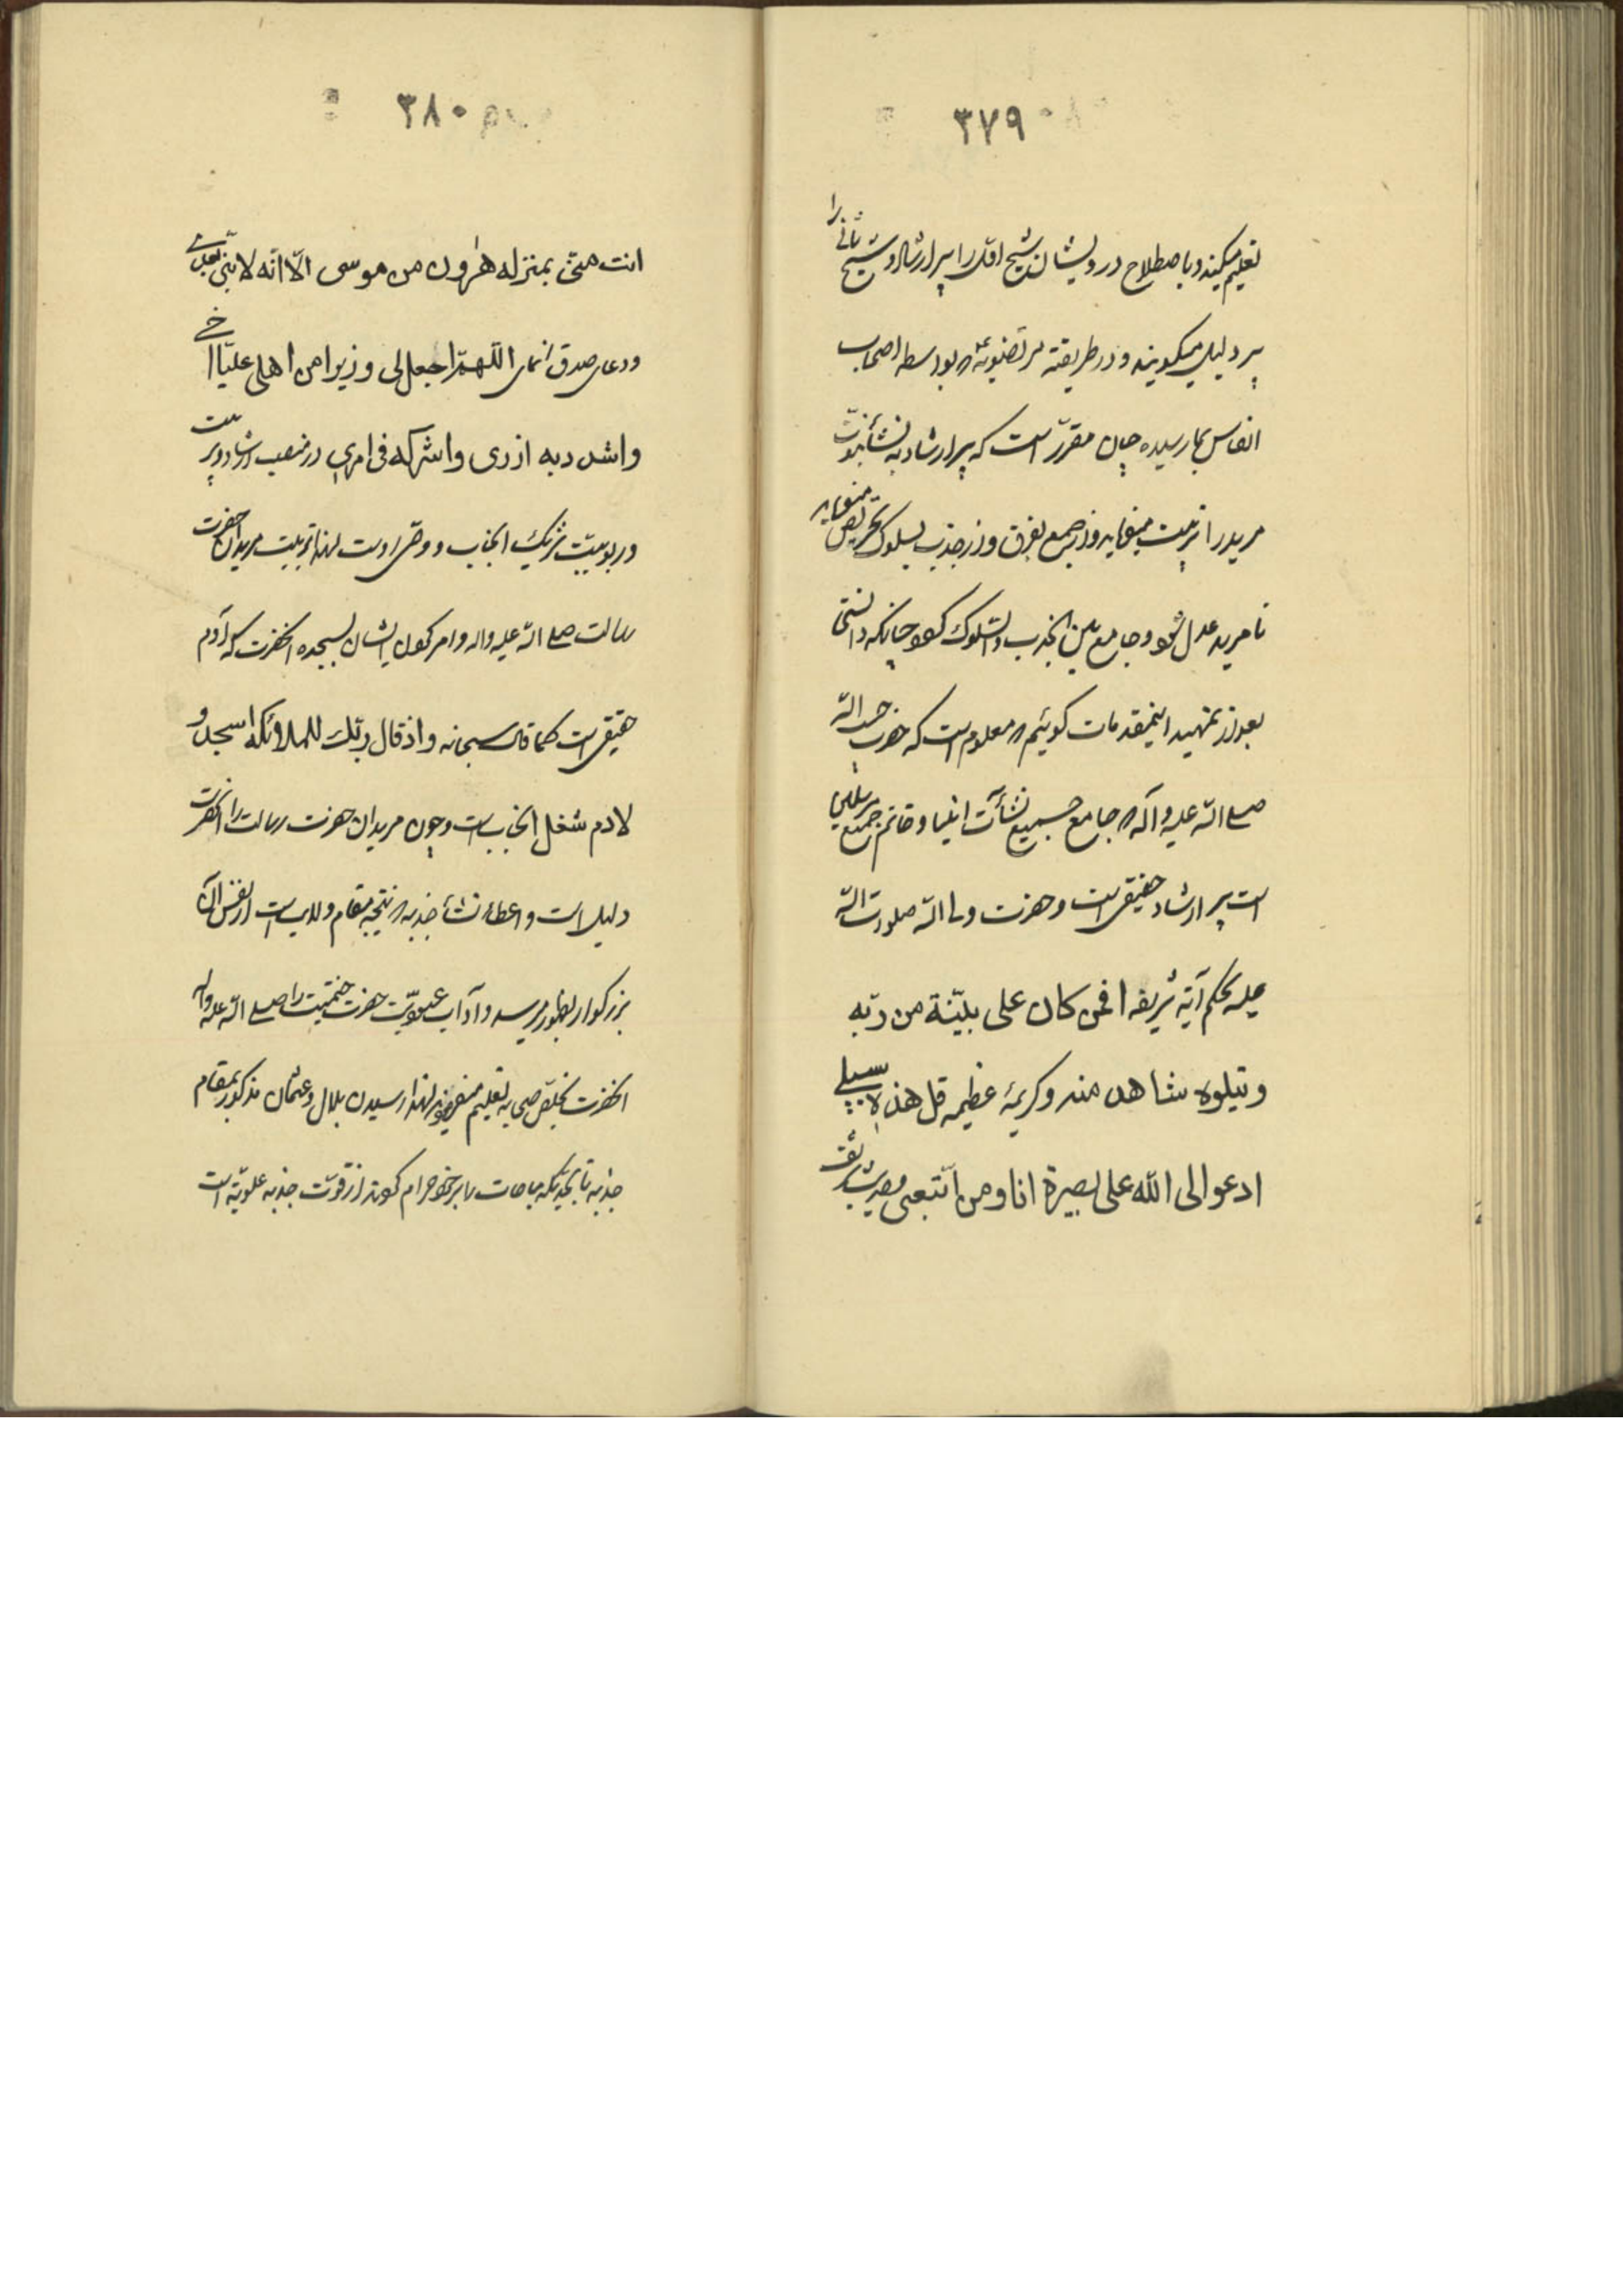 ۳۷۹
تعلیم میکنند و باصطلاح درویشان شیخ اوّل را پیر ارشاد و شیخ ثانی را
پیر دلیل میگویند و در طریقه مرتضویّه که بواسطه اصحاب
انفاس بما رسیده چنان مقرّر است که پیر ارشاد به نشأه نبوّت
مرید را تربیت مینماید و از جمع بفرق و از جذب بسلوک تحریص مینماید
تا مرید عدل شود و جامع بین الجذب والسّلوک شود چنانکه دانستی
بعد از تمهید اینمقدمات گوئیم که معلوم است که حضرت حبیب الله
صلی الله علیه و آله که جامع جمیع نشأت انبیا و خاتم جمیع مرسلین
است پیر ارشاد حقیقی است و حضرت ولی الله صلوات الله
علیه بحکم آیه شریفه افمن کان علی بیّنة من ربّه
ویتلوه شاهد منه و کریمه عظیمه قل هذه سبیلی
ادعو الی الله علی بصیرة انا و من اتّبعنی و حدیث شریف
۳۸۰
انت منّی بمنزله هرون من موسی الّا انّه لا نبّی بعدی
ودعای صدق انمای اللّهمّ اجعل لی وزیرا من اهلی علیّا اخی
واشدد به ازری واشرکه فی امری در منصب ارشاد و تربیت
و ربوبیّت شریک آنجناب و وصّی اوست لهذا تربیت مریدان حضرت
رسالت صلی الله علیه واله وامر کردن ایشان بسجده آنحضرت که آدم
حقیقی است کما قال سبحانه واذ قال ربّک للملائکه اسجدوا
لادم شغل آنجناب است و چون مریدان حضرت رسالت را آنحضرت
دلیل است و اعطاء نشأه جذبه که نتیجه مقام ولایت است از نفس آن
بزرگوار بظهور میرسد و آداب عبودیّت حضرت ختمیّت را صلی الله علیه واله
آنحضرت بخلّص صحابه تعلیم میفرمودند لهذا رسیدن بلال و عثمان مذکور بمقام
جذبه تا بحدّیکه مباحات را بر خود حرام کردند از قوّت جذبه علویّه است